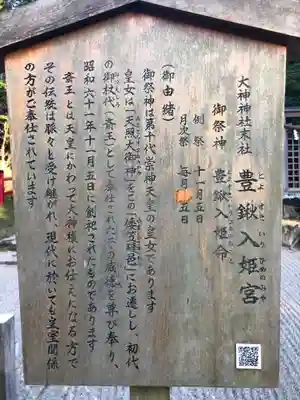 大神神社末社
豊鍬入姫宮
とよすきいりひめのみや
御祭神 豊鍬入姫命
例祭 十一月五日
月次祭 毎月五日
(御由緒)
御祭神は第十代崇神天皇の皇女であります
皇女は「天照大御神」をこの「倭笠縫邑」にお遷しし、初代
の御杖代(斎王)として奉仕されたその威徳を尊び奉り、
昭和六十一年十一月五日に創祀されたものであります
斎王とは天皇にかわって大神様にお仕えになる方で
その伝統は脈々と受け継がれ、現代に於いても皇室関係
の方がご奉仕されています